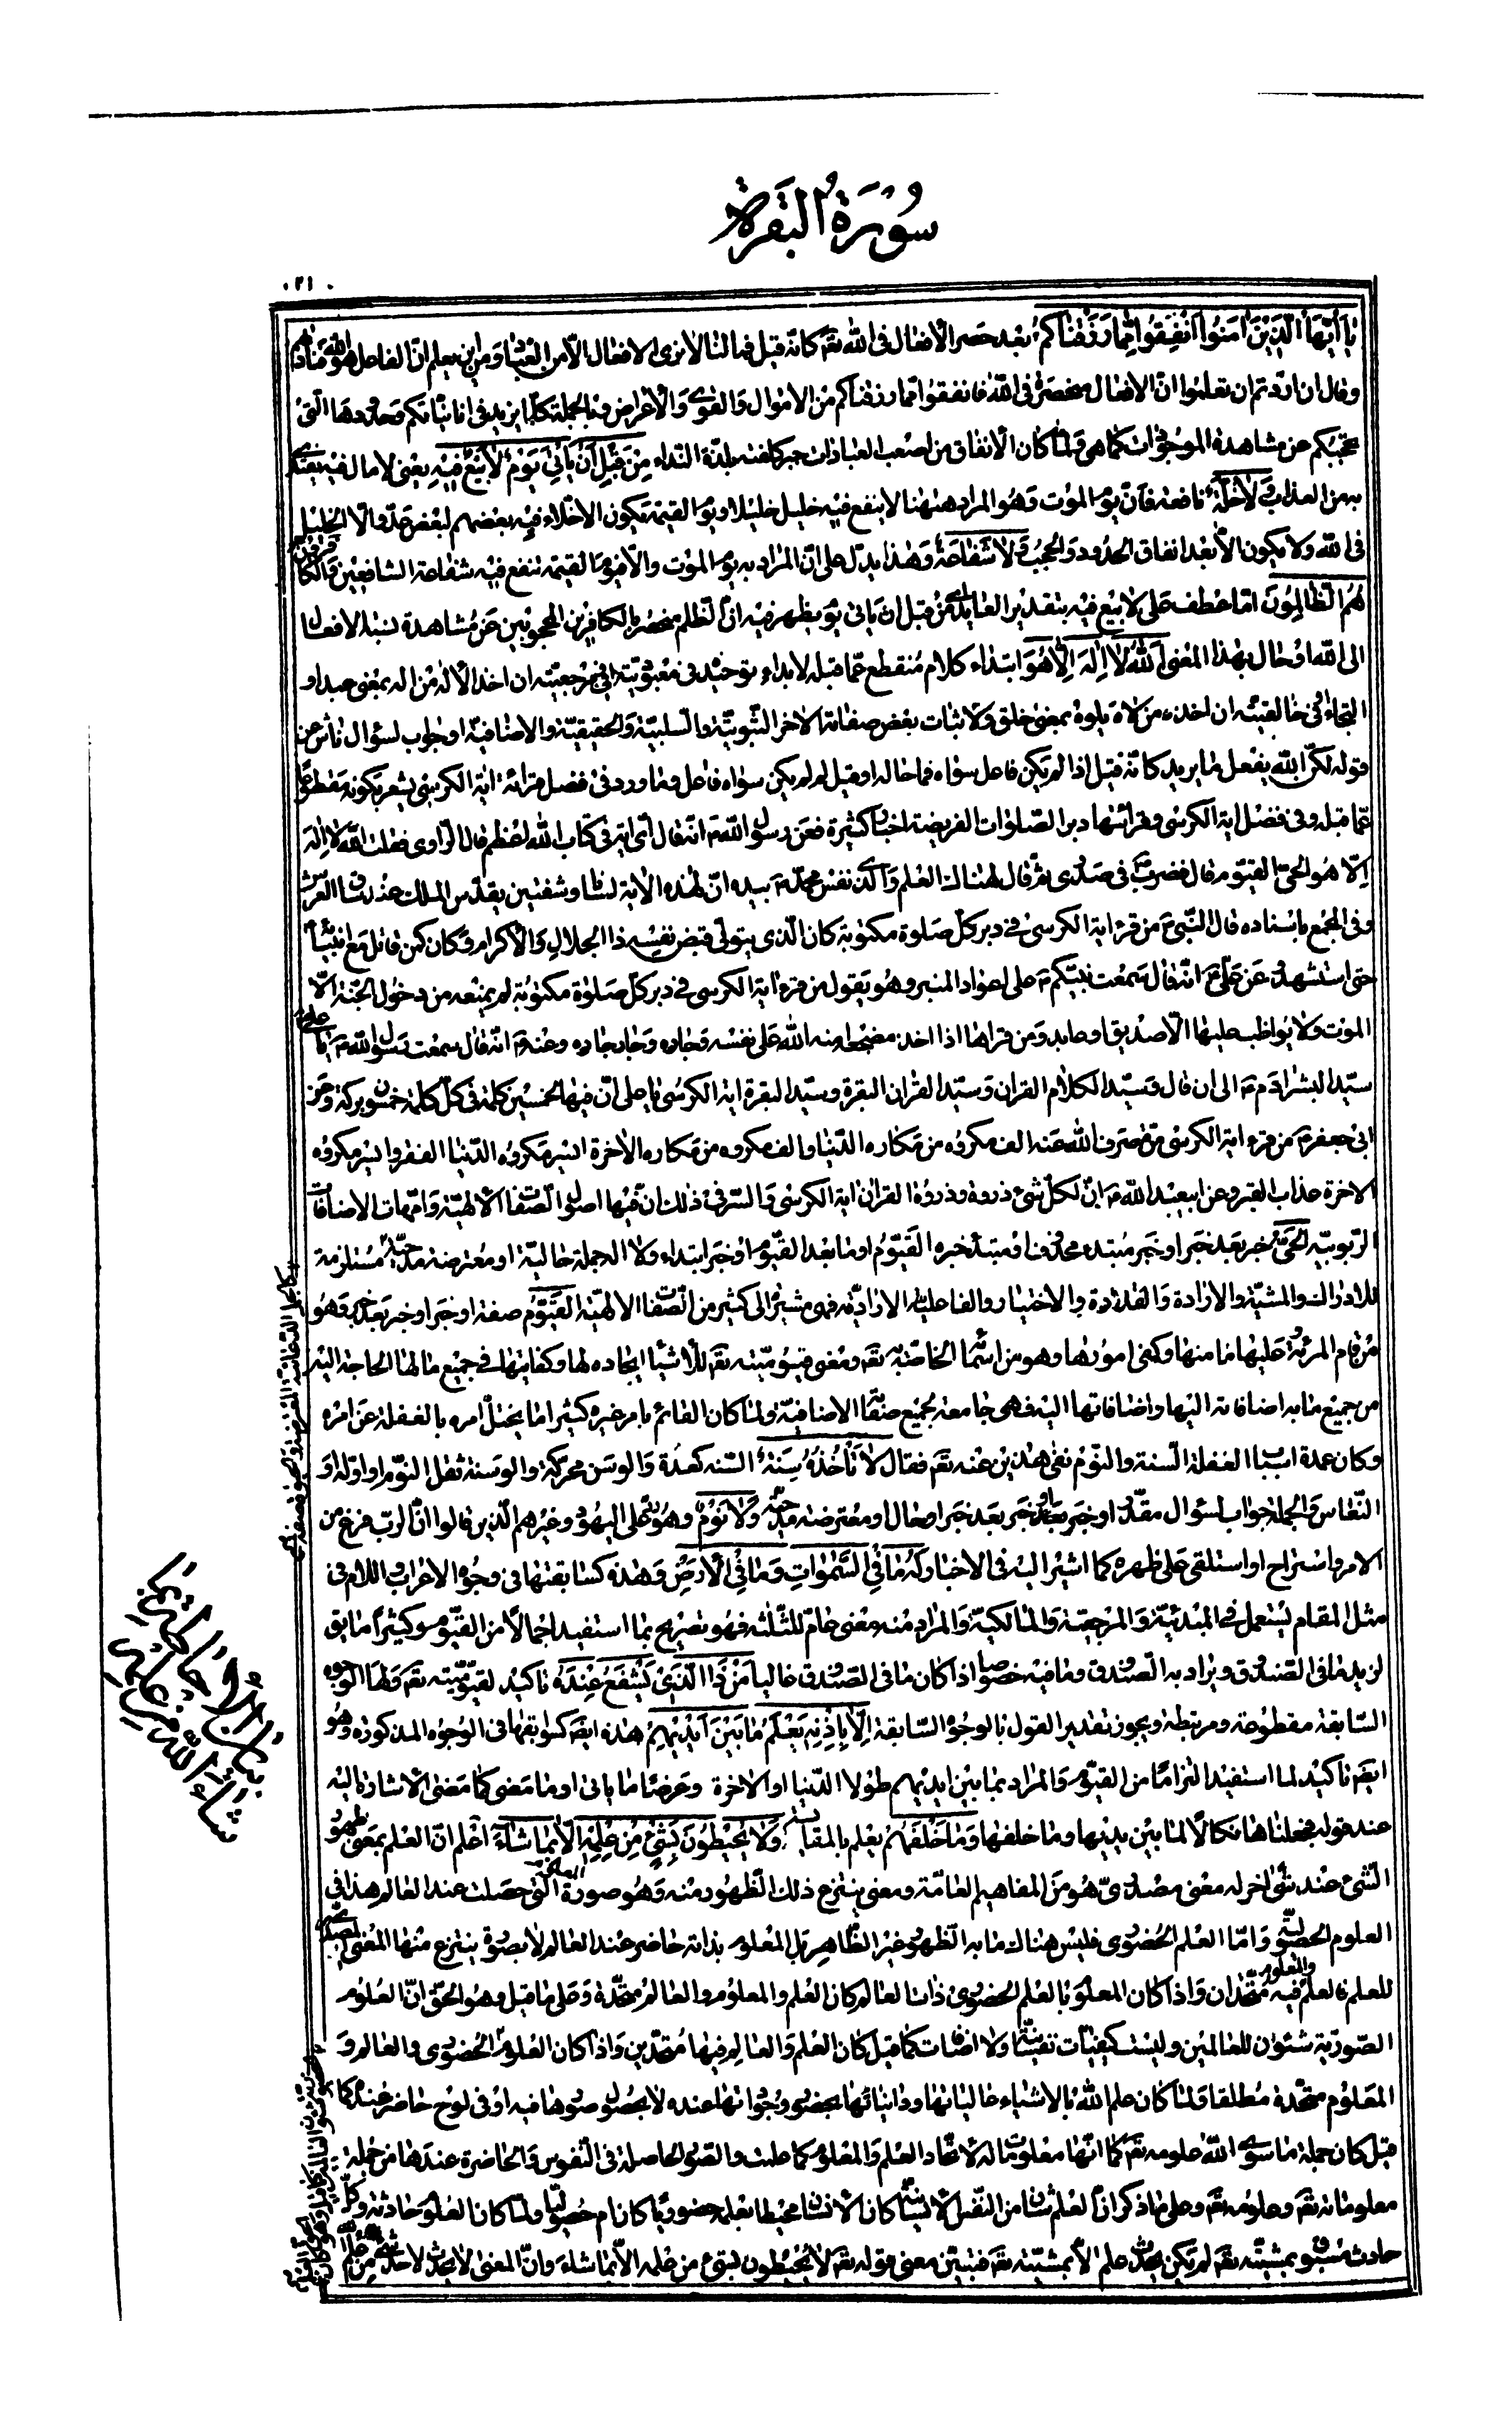 سورة البقرة
٢١٠
يا ايها الذين امنوا انفقوا مما رزقناكم بعد حصر الافعال فى الله تعالى كانه قيل فما لنا لا نرى الافعال الا من العباد ومن اين يعلم ان الفاعل هو الله فناداهم
وقال ان اردتم ان تعلموا ان الافعال منحصرة فى الله فانفقوا مما رزقناكم من الاموال والقوى والاعراض وبالجملة كلما يزيد فى انانياتكم وحدودها التى
تحجبكم عن مشاهدة الموجودات كما هى ولما كان الانفاق من اصعب العبادات جبر كلفته بلذة النداء من قبل ان يأتى يوم لا بيع فيه يعنى لا مال فيه يفتدى
به من العذاب ولا خلة نافعة فان يوم الموت وهو المراد ههنا لا ينفع فيه خليل خليلا ويوم القيمة يكون الاخلاء فيه بعضهم لبعض عدوا الا الخليل
فى الله ولا يكون الا بعد انفاق الحدود والحجب ولا شفاعة وهذا يدل على ان المراد به يوم الموت والا فيوم القيمة تنفع فيه شفاعة الشافعين والكافرون
هم الظالمون اما عطف على لا بيع فيه بتقدير العايد اى من قبل ان يأتى يوم يظهر فيه ان الظلم منحصر بالكافرين المحجوبين عن مشاهدة نسبة الافعال
الى الله او حال بهذا المعنى الله لا اله الا هو ابتداء كلام منقطع عما قبله لابداء توحيده فى معبوديته او فى مرجعيته ان اخذ الاله من اله بمعنى عبد او
التجاء او فى خالقيته ان اخذ من لاه يلوه بمعنى خلق ولاثبات بعض صفاته الاخر الثبوتية والسلبية والحقيقية والاضافية او جواب لسؤال ناش عن
قوله لكن الله يفعل ما يريد كانه قيل اذا لم يكن فاعل سواه فما حاله او قيل لم لم يكن سواه فاعل وما ورد فى فضل قرائة اية الكرسى يشعر بكونه مقطوعا
عما قبله وفى فضل اية الكرسى وقرائتها دبر الصلوات الفريضة اخبار كثيرة فعن رسول الله ص انه قال اى اية فى كتاب الله اعظم قال الراوى فقلت الله لا اله
الا هو الحى القيوم قال فضرب فى صدرى ثم قال لهناك العلم والذى نفس محمد ص بيده ان لهذه الاية لسانا وشفتين يقدس الملك عند ساق العرش
وفى المجمع باسناده قال النبى ص من قرء اية الكرسى فى دبر كل صلوة مكتوبة كان الذى يتولى قبض نفسه ذا الجلال والاكرام وكان كمن قاتل مع انبياء
حتى استشهد وعن على ع انه قال سمعت نبيكم ص على اعواد المنبر وهو يقول من قرء اية الكرسى فى دبر كل صلوة مكتوبة لم يمنعه من دخول الجنة الا
الموت ولا يواظب عليها الا صديق او عابد ومن قرأها اذا اخذ مضجعه امنه الله على نفسه وجاره وجار جاره وعنه ع انه قال سمعت رسول الله ص يا على
سيد البشر ادم ع الى ان قال وسيد الكلام القران وسيد القران البقرة وسيد البقرة اية الكرسى يا على ان فيها لخمسين كلمة فى كل كلمة خمسون بركة وعن
ابى جعفر ع من قرء اية الكرسى مرة صرف الله عنه الف مكروه من مكاره الدنيا والف مكروه من مكاره الاخرة ايسر مكروه الدنيا الفقر وايسر مكروه
الاخرة عذاب القبر وعن ابيعبد الله ع ان لكل شئ ذروة وذروة القران اية الكرسى والسر فى ذلك ان فيها اصول الصفات الالهية وامهات الاضافات
الربوبية الحى خبر بعد خبر او خبر مبتدء محذوف او مبتدء خبره القيوم او ما بعد القيوم او خبر ابتداء ولا اله جملة حالية او معترضة مدحية مستلزمة
للادراك والمشية والارادة والقدرة والاختيار والفاعلية الارادية فهى مشير الى كثير من الصفات الالهية القيوم صفة او خبر او خبر بعد خبر وهو
من قام المرئة عليها مانها وكفى امورها وهو من اسمائه الخاصة به تعالى ومعنى قيوميته تعالى للاشياء ايجاده لها وكفايتها فى جميع ما لها الحاجة اليه
من جميع ما به اضافاته اليها واضافاتها اليه فهى جامعة لجميع صفاته الاضافية ولما كان القائم بامر غيره كثيرا ما يختل امره بالغفلة عن امره
وكان عمدة اسباب الغفلة السنة والنوم نفى هذين عنه تعالى فقال لا تأخذه سنة السنة كعدة والوسن محركة والوسنة ثقل النوم او اوله او
النعاس والجملة جواب لسؤال مقدر او خبر بعد خبر او حال او معترضة مدحية ولا نوم وهو رد على اليهود وغيرهم الذين قالوا ان الرب فرغ من
الامر واستراح او استلقى على ظهره كما اشير اليه فى الاخبار له ما فى السموات وما فى الارض وهذه كسابقتها فى وجوه الاعراب واللام فى
مثل المقام يستعمل فى المبدئية والمرجعية والمالكية والمراد منه معنى عام للثلثة فهو تصريح بما استفيد اجمالا من القيوم وكثيرا ما يق
لزيد ما فى الصندوق ويراد به الصندوق وما فيه خصوصا اذا كان ما فى الصندوق غاليا من ذا الذى يشفع عنده تاكيد لقيوميته تعالى ولها الوجوه
السابقة مقطوعة ومرتبطة ويجوز تقدير القول بالوجوه السابقة الا باذنه يعلم ما بين ايديهم هذه ايضا كسوابقها فى الوجوه المذكورة وهو
ايضا تاكيد لما استفيد التزاما من القيوم والمراد بما بين ايديهم طولا الدنيا او الاخرة وعرضا ما يأتى او ما مضى كما مضى الاشارة اليه
عند قوله فجعلناها نكالا لما بين يديها وما خلفها وما خلفهم يعلم بالمقايسة ولا يحيطون بشئ من علمه الا بما شاء اعلم ان العلم بمعنى ظهور
الشئ عند شئ اخر له معنى مصدرى هو من المفاهيم العامة ومعنى ينتزع ذلك الظهور منه وهو صورة الشئ التى حصلت عند العالم هذا فى
العلوم الحصولية واما العلم الحضورى فليس هناك ما به الظهور غير الظاهر بل المعلوم بذاته حاضر عند العالم لا بصورة ينتزع منها المعنى المصدرى
للعلم فالعلم والمعلوم فيه متحدان واذا كان المعلوم بالعلم الحضورى ذات العالم كان العلم والمعلوم والعالم متحدة وعلى ما قيل وهو الحق ان العلوم
الصورية شئون للعالمين وليست كيفيات نفسية ولا اضافات كما قيل كان العلم والعالم فيها متحدين واذا كان العلوم الحضورى والعالم و
المعلوم متحدة مطلقا ولما كان علم الله بالاشياء عالياتها ودانياتها بحضور وجوداتها عنده لا بحصول صورها فيه او فى لوح حاضر عنده كما
قيل كان جملة ما سوى الله علومه تعالى كما انها معلومات له لاتحاد العلم والمعلوم كما علمت والصور الحاصلة فى النفوس والحاضرة عندها من جملة
معلوماته تعالى وعلومه تعالى وعلى ما ذكر ان العلم شأن من النفس الانسانية كان الانسان محيطا بعلمه حضوريا كان ام حصوليا ولما كان العلوم حادثة وكل
حادث مسبوق بمشيته تعالى لم يكن يحدث علم الا بمشيته تعالى فتبين معنى قوله تعالى لا يحيطون بشئ من علمه الا بما شاء وان المعنى لا يحدث لاحد شئ من علم الله